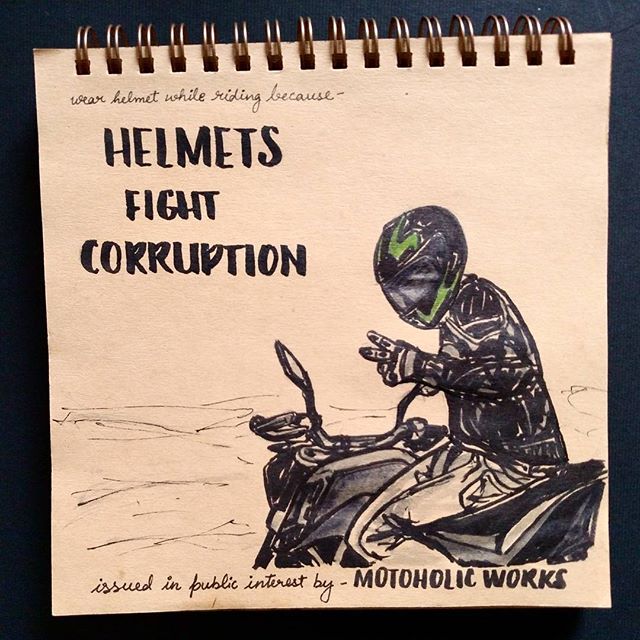 wear helmet while riding because-
HELMETS
FIGHT
CORRUPTION
issued in public interest by - MOTOHOLIC WORKS